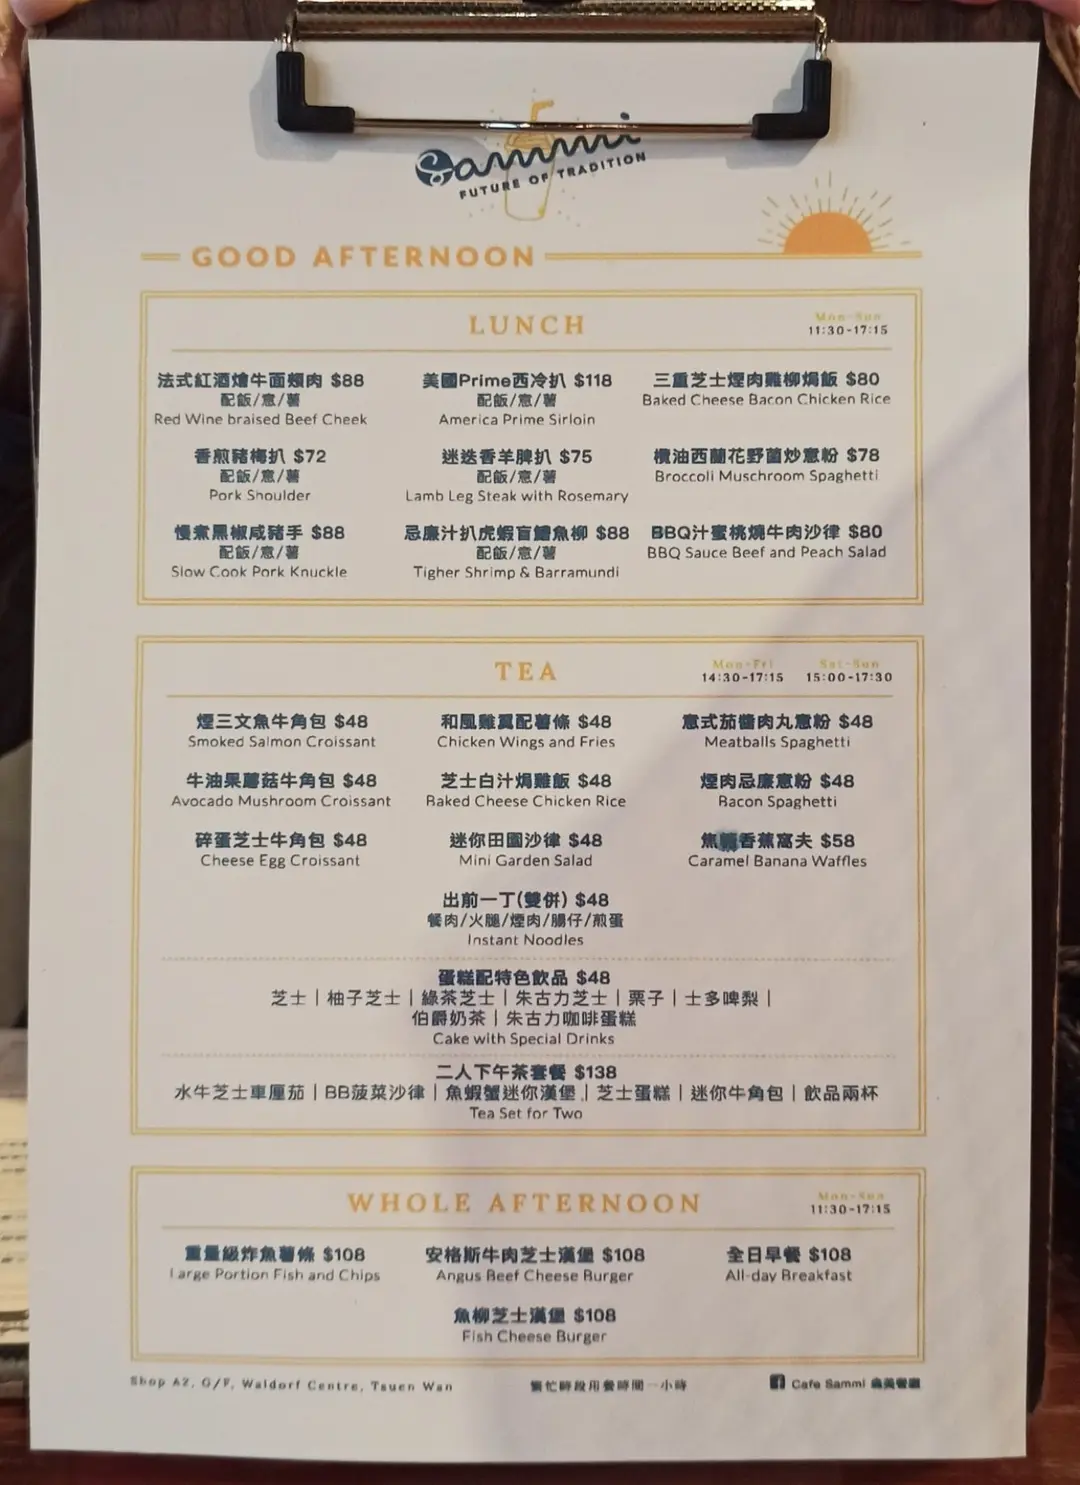 Sammi
FUTURE OF TRADITION
GOOD AFTERNOON
LUNCH
Mon-Sun
11:30-17:15
法式紅酒燴牛面頰肉 $88
配飯/意/薯
Red Wine braised Beef Cheek
美國Prime西冷扒 $118
配飯/意/薯
America Prime Sirloin
三重芝士煙肉雞柳焗飯 $80
Baked Cheese Bacon Chicken Rice
香煎豬梅扒 $72
配飯/意/薯
Pork Shoulder
迷迭香羊脾扒 $75
配飯/意/薯
Lamb Leg Steak with Rosemary
欖油西蘭花野菌炒意粉 $78
Broccoli Muschroom Spaghetti
慢煮黑椒咸豬手 $88
配飯/意/薯
Slow Cook Pork Knuckle
忌廉汁扒虎蝦盲鰽魚柳 $88
配飯/意/薯
Tigher Shrimp & Barramundi
BBQ汁蜜桃燒牛肉沙律 $80
BBQ Sauce Beef and Peach Salad
TEA
Mon-Fri
14:30-17:15
Sat-Sun
15:00-17:30
煙三文魚牛角包 $48
Smoked Salmon Croissant
和風雞翼配薯條 $48
Chicken Wings and Fries
意式茄醬肉丸意粉 $48
Meatballs Spaghetti
牛油果蘑菇牛角包 $48
Avocado Mushroom Croissant
芝士白汁焗雞飯 $48
Baked Cheese Chicken Rice
煙肉忌廉意粉 $48
Bacon Spaghetti
碎蛋芝士牛角包 $48
Cheese Egg Croissant
迷你田園沙律 $48
Mini Garden Salad
焦糖香蕉窩夫 $58
Caramel Banana Waffles
出前一丁(雙併) $48
餐肉/火腿/煙肉/腸仔/煎蛋
Instant Noodles
蛋糕配特色飲品 $48
芝士｜柚子芝士｜綠茶芝士｜朱古力芝士｜栗子｜士多啤梨｜
伯爵奶茶｜朱古力咖啡蛋糕
Cake with Special Drinks
二人下午茶套餐 $138
水牛芝士車厘茄｜BB菠菜沙律｜魚蝦蟹迷你漢堡｜芝士蛋糕｜迷你牛角包｜飲品兩杯
Tea Set for Two
WHOLE AFTERNOON
Mon-Sun
11:30-17:15
重量級炸魚薯條 $108
Large Portion Fish and Chips
安格斯牛肉芝士漢堡 $108
Angus Beef Cheese Burger
全日早餐 $108
All-day Breakfast
魚柳芝士漢堡 $108
Fish Cheese Burger
Shop A2, G/F, Waldorf Centre, Tsuen Wan
繁忙時段用餐時間一小時
Cafe Sammi